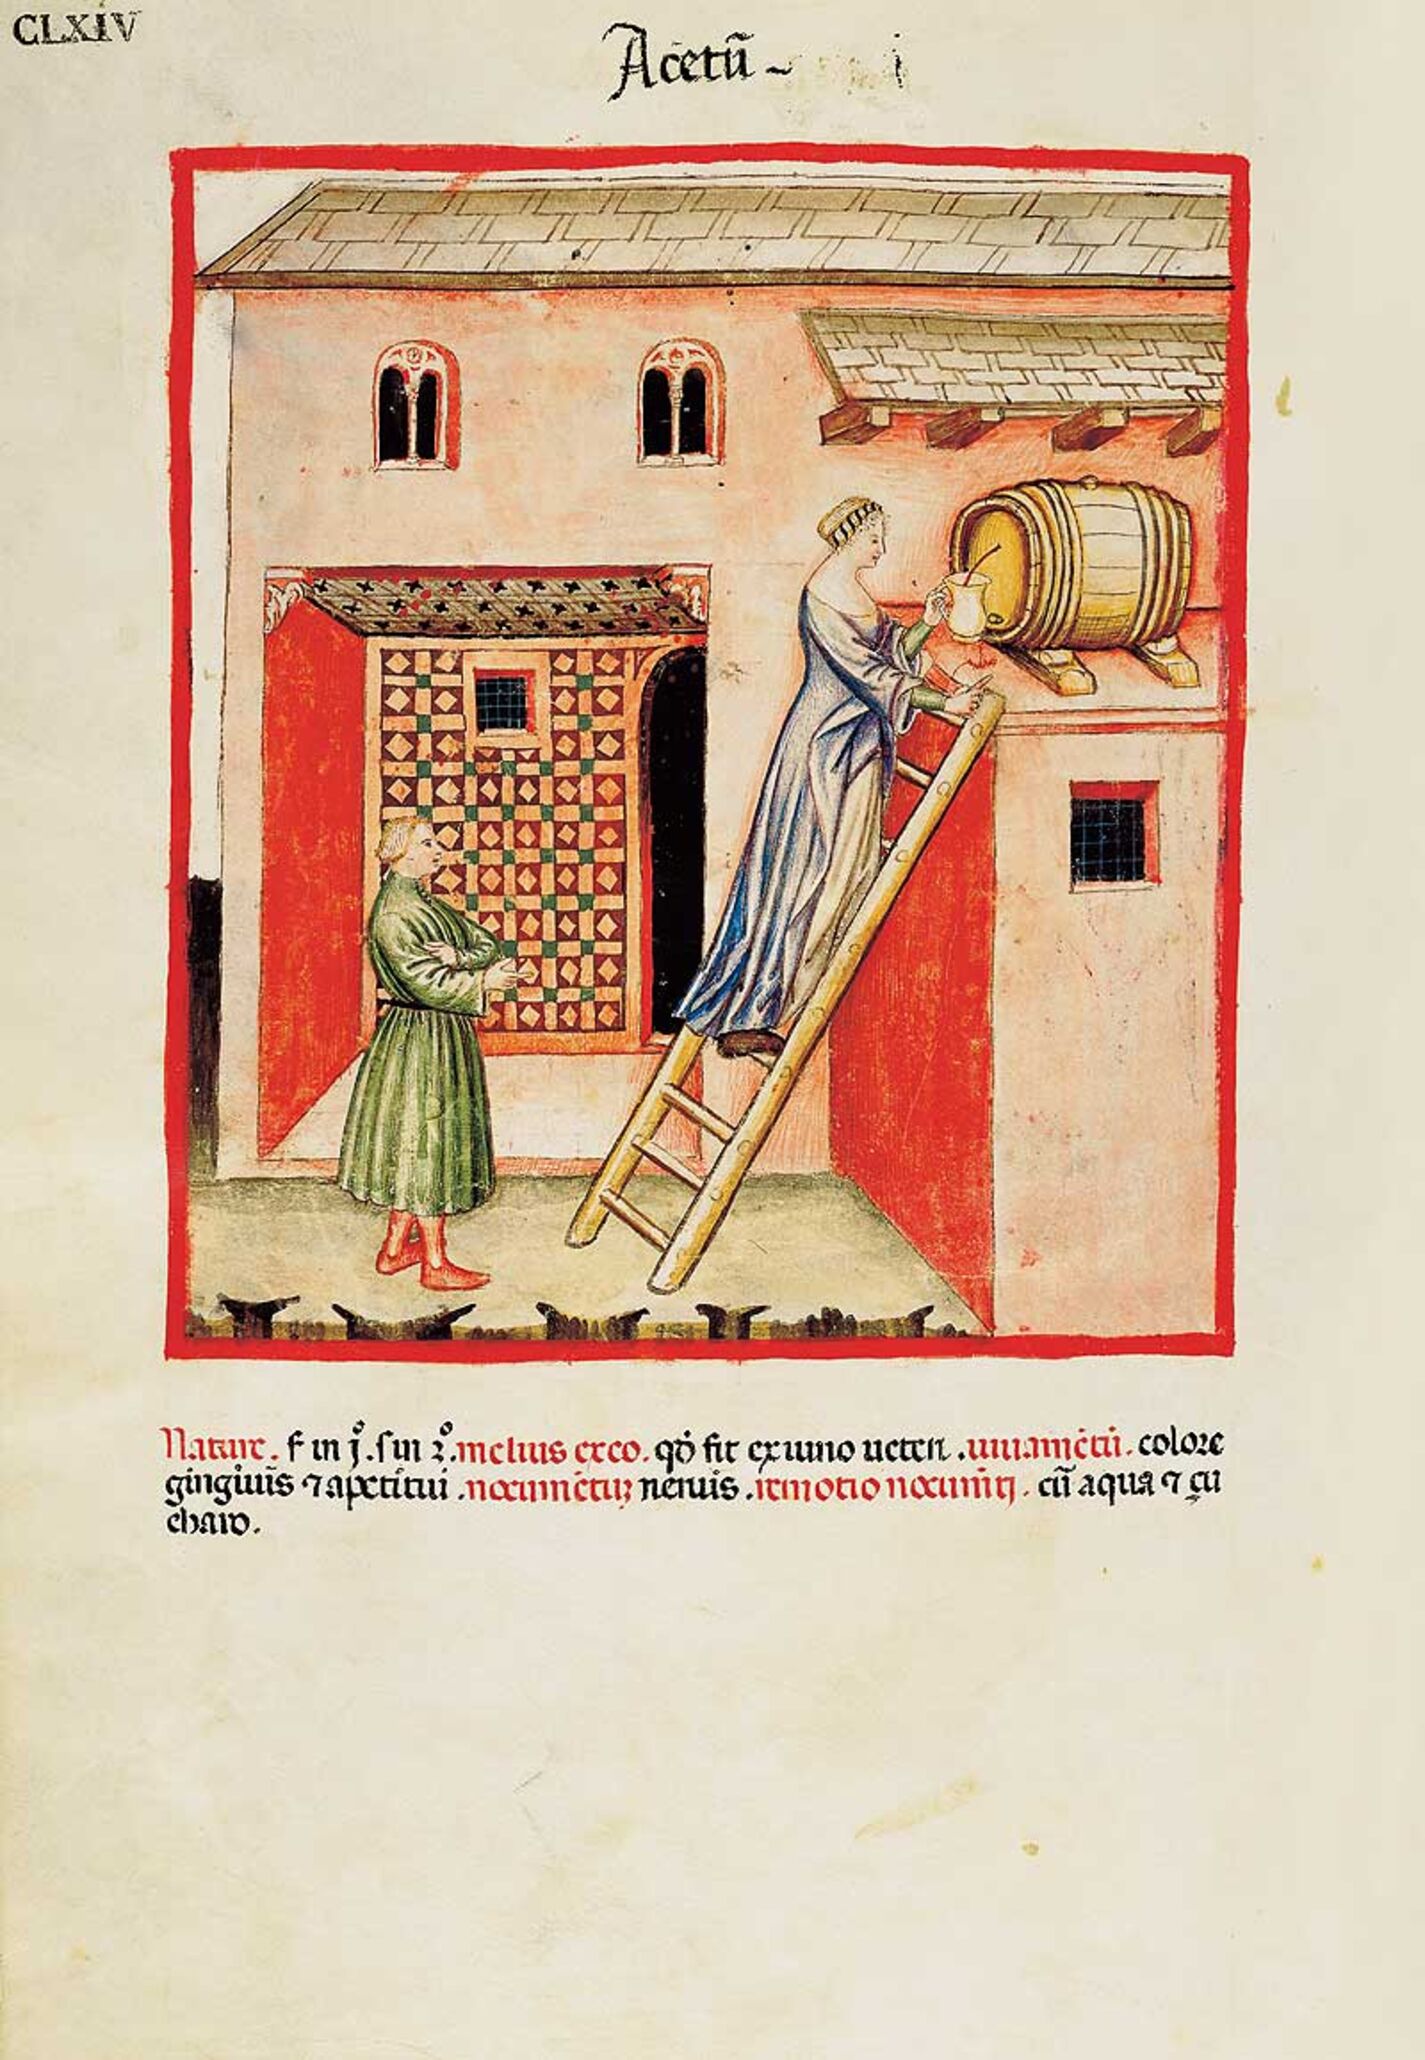 CLXIV
Acetū
Nature. f in j°. s in 2°. melius ex eo. qd̓ fit ex uino ueteri. iuuamētū. colore
gingiuis ⁊ apetitui. nocumētuꝫ neruis. remotio nocumēti. cū aqua ⁊ çu
charo.